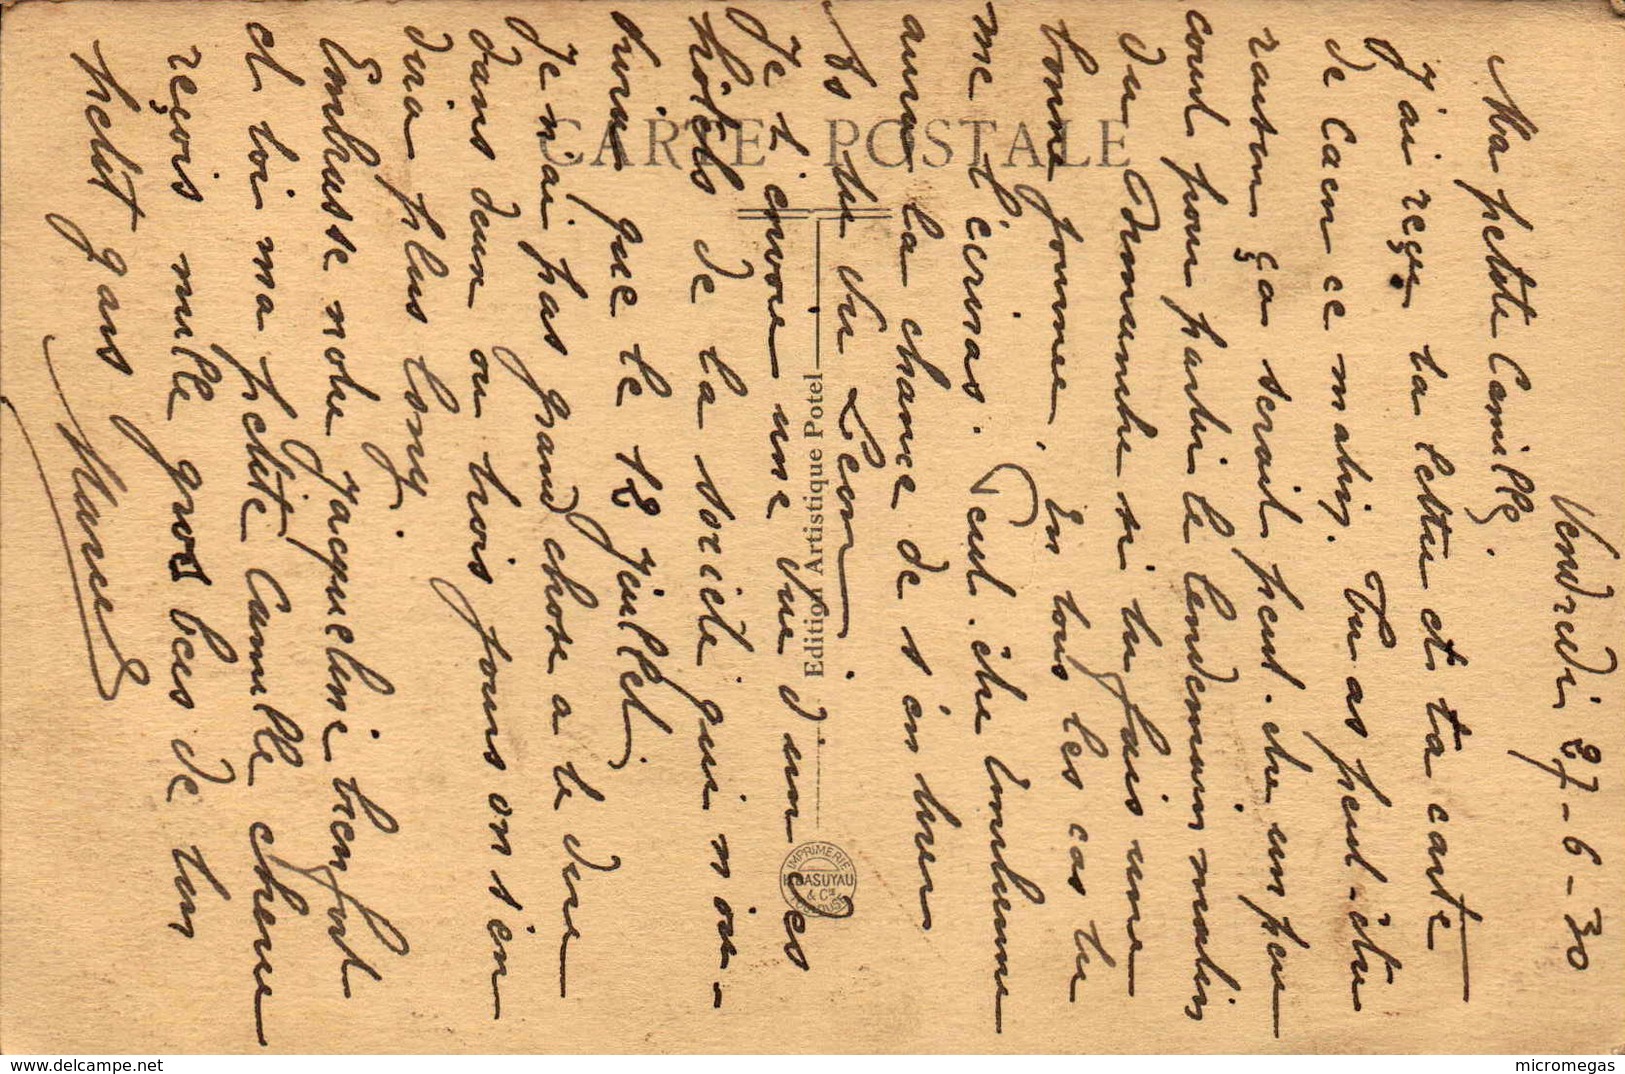 Vendredi 27-6-30
Ma petite Camille,
J'ai reçu ta lettre et ta carte
de Caen ce matin. Tu as peut-être
raison ça serait peut-être un peu
court pour partir le lendemain matin
du dimanche si tu fais une
bonne journée. En tous les cas tu
me l'écriras. Peut-être Emilienne
aura la chance de s'en tirer
As tu vu Léon
Je t'envoie une vue d'un des
hôtels de la société qui n'ou-
vrira que le 12 Juillet.
Je n'ai pas grand chose a te dire
dans deux ou trois jours on s'en
dira plus long.
Embrasse notre Jacqueline bien fort
et toi ma petite Camille cherie
reçois mille gros becs de ton
petit gars
Marcel
CARTE POSTALE
Edition Artistique Potel
IMPRIMERIE
BASUYAU
& Cie
TOULOUSE
delcampe.net
micromegas